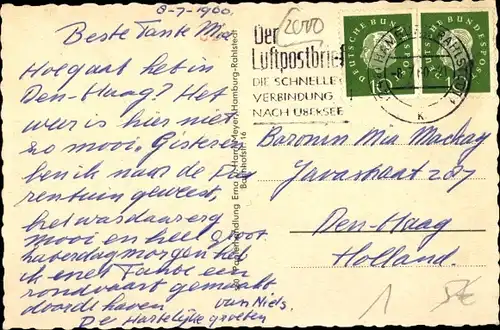 8-7-1960,
Beste Tante Mia
Hoe gaat het in
Den-Haag? Het
weer is hier niet
zo mooi. Gisteren
ben ik naar de Die
rentuin geweest,
het was daar erg
mooi en heel groot.
haverdag morgen heb
ik en een Tante een
rondvaart gemaakt
door de haven
van Niels.
De Hartelijke groeten
Der
Luftpostbrief
DIE SCHNELLE
VERBINDUNG
NACH ÜBERSEE
2000
DEUTSCHE BUNDESPOST
DEUTSCHE BUNDESPOST
HAMBURG-RAHLSTEDT 1
K
Hamburg-Rahlstedt
Bahnhofstr. 16
Baronin Mia Mackay
Javastraat 287
Den-Haag
Holland.
1
5€